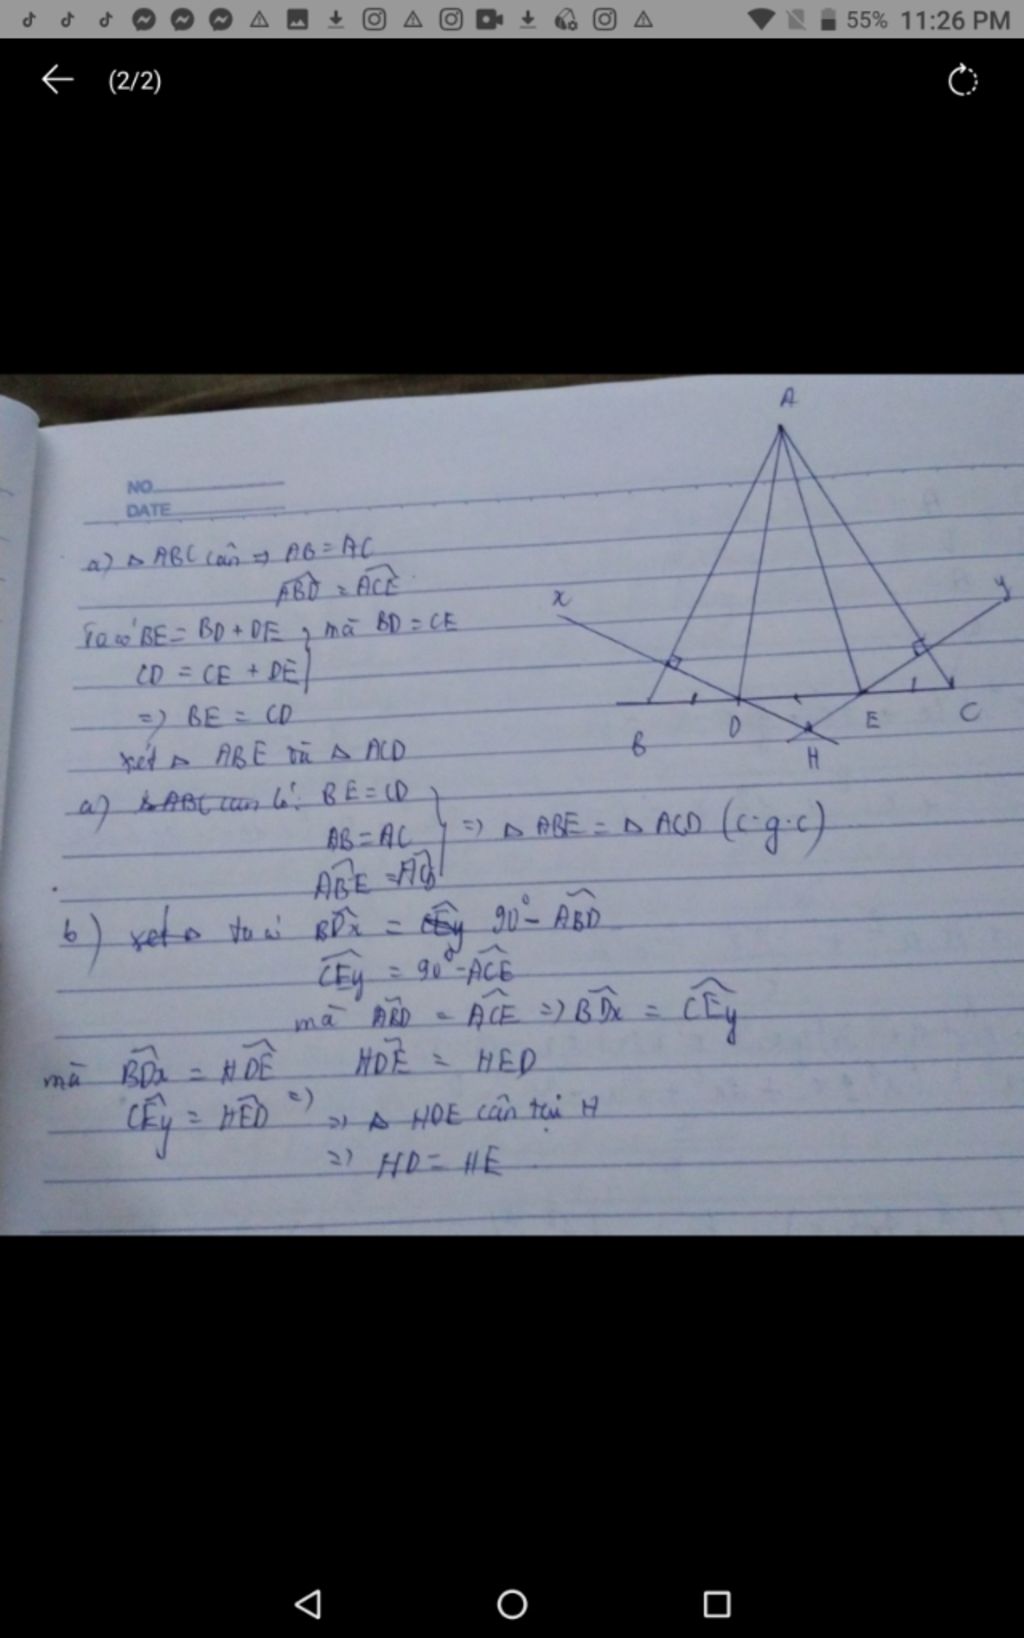 55% 11:26 PM
(2/2)
NO
DATE
A
a) △ABC cân ⇒ AB = AC
ABD = ACE
Ta có BE = BD + DE } mà BD = CE
CD = CE + DE
=> BE = CD
xét △ ABE và △ ACD
a) △ABC cân có: BE = CD
AB = AC => △ ABE = △ ACD (c.g.c)
ABE = ACD
b) xét △ ta có BDx = CEy 90° - ABD
CEy = 90° - ACE
mà ABD = ACE => BDx = CEy
mà BDx = HDE HDE = HED
CEy = HED => => △ HDE cân tại H
=> HD = HE
x
y
B
D
H
E
C